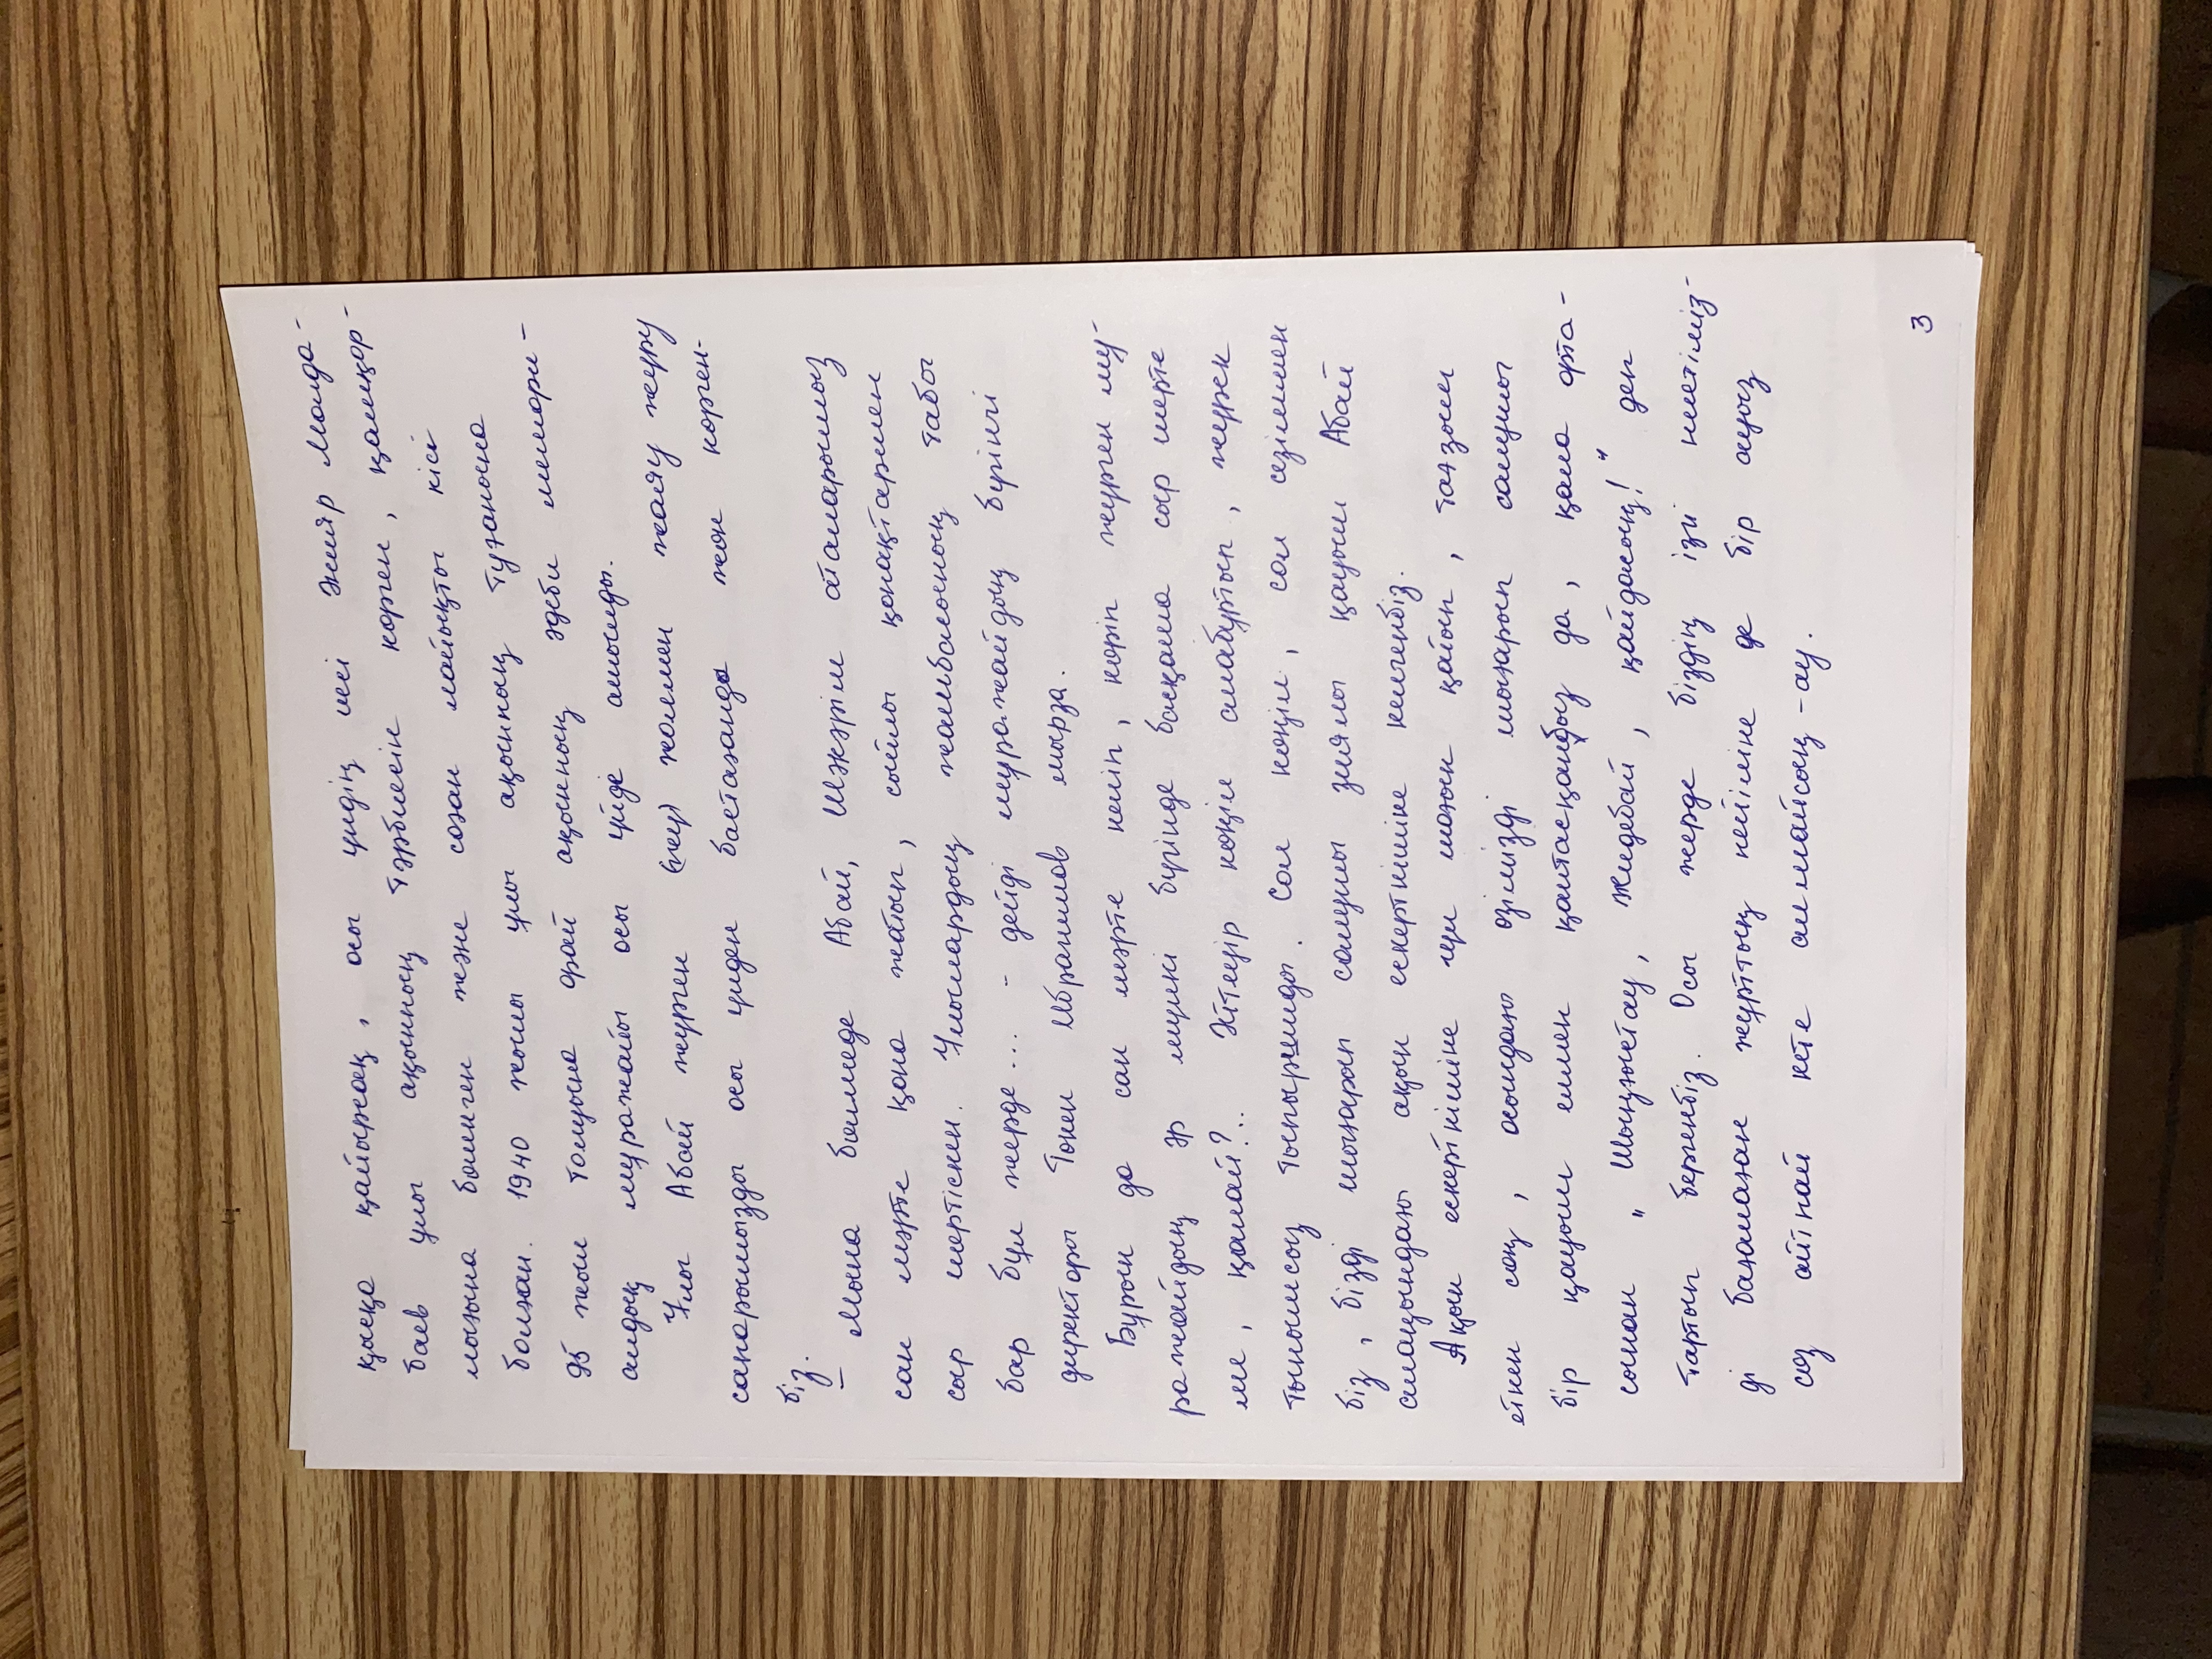 қысқа қайырсақ, осы үйдің иесі Әнияр Молда-
баев ұлы ақынның тәрбиесін көрген, қамқор-
лығына бөленген және соған лайықты кісі
болған. 1940 жылы ұлы ақынның туғанына
95 жыл толуына орай ақынның әдеби мемори-
алдық мұражайы осы үйде ашылды.
Ұлы Абай жүрген (жү) жолмен жаяу жүру
сапарымызды осы үйден бастағанды жөн көрген-
біз.
– Мына бөлмеде Абай, Шәкәрім аталарымыз
сан мәрте қона жатып, сыйлы қонақтармен
сыр шертіскен. Ұлылардың жамбасының табы
бар бұл жерде... - дейді мұражайдың бүгінгі
директоры Төкен Ибрагимов мырза.
Бұрын да сан мәрте келіп, көріп жүрген мұ-
ражайдың әр мүлкі бүгінде басқаша сыр шерте
ме, қалай?.. Әйтеуір көңіл алабұртып, жүрек
тынымсыз тыпыршиды. Сол көңіл, сол сезіммен
біз, бізді шығарып салушы зиялы қауым Абай
алаңындағы ақын ескерткішіне келгенбіз.
Ақын ескерткішіне гүл шоғын қойып, тағзым
еткен соң, осындағы өзімізді шығарып салушы
бір қауым елмен қоштасқанбыз да, қала орта-
сынан „Шыңғыстау, Жидебай, қайдасың!" деп
тартып бергенбіз. Осы жерде біздің ізгі ниетіміз-
ді бағалаған жұрттың пейіліне де бір ауыз
сөз айтпай кете алмайсың-ау.
3